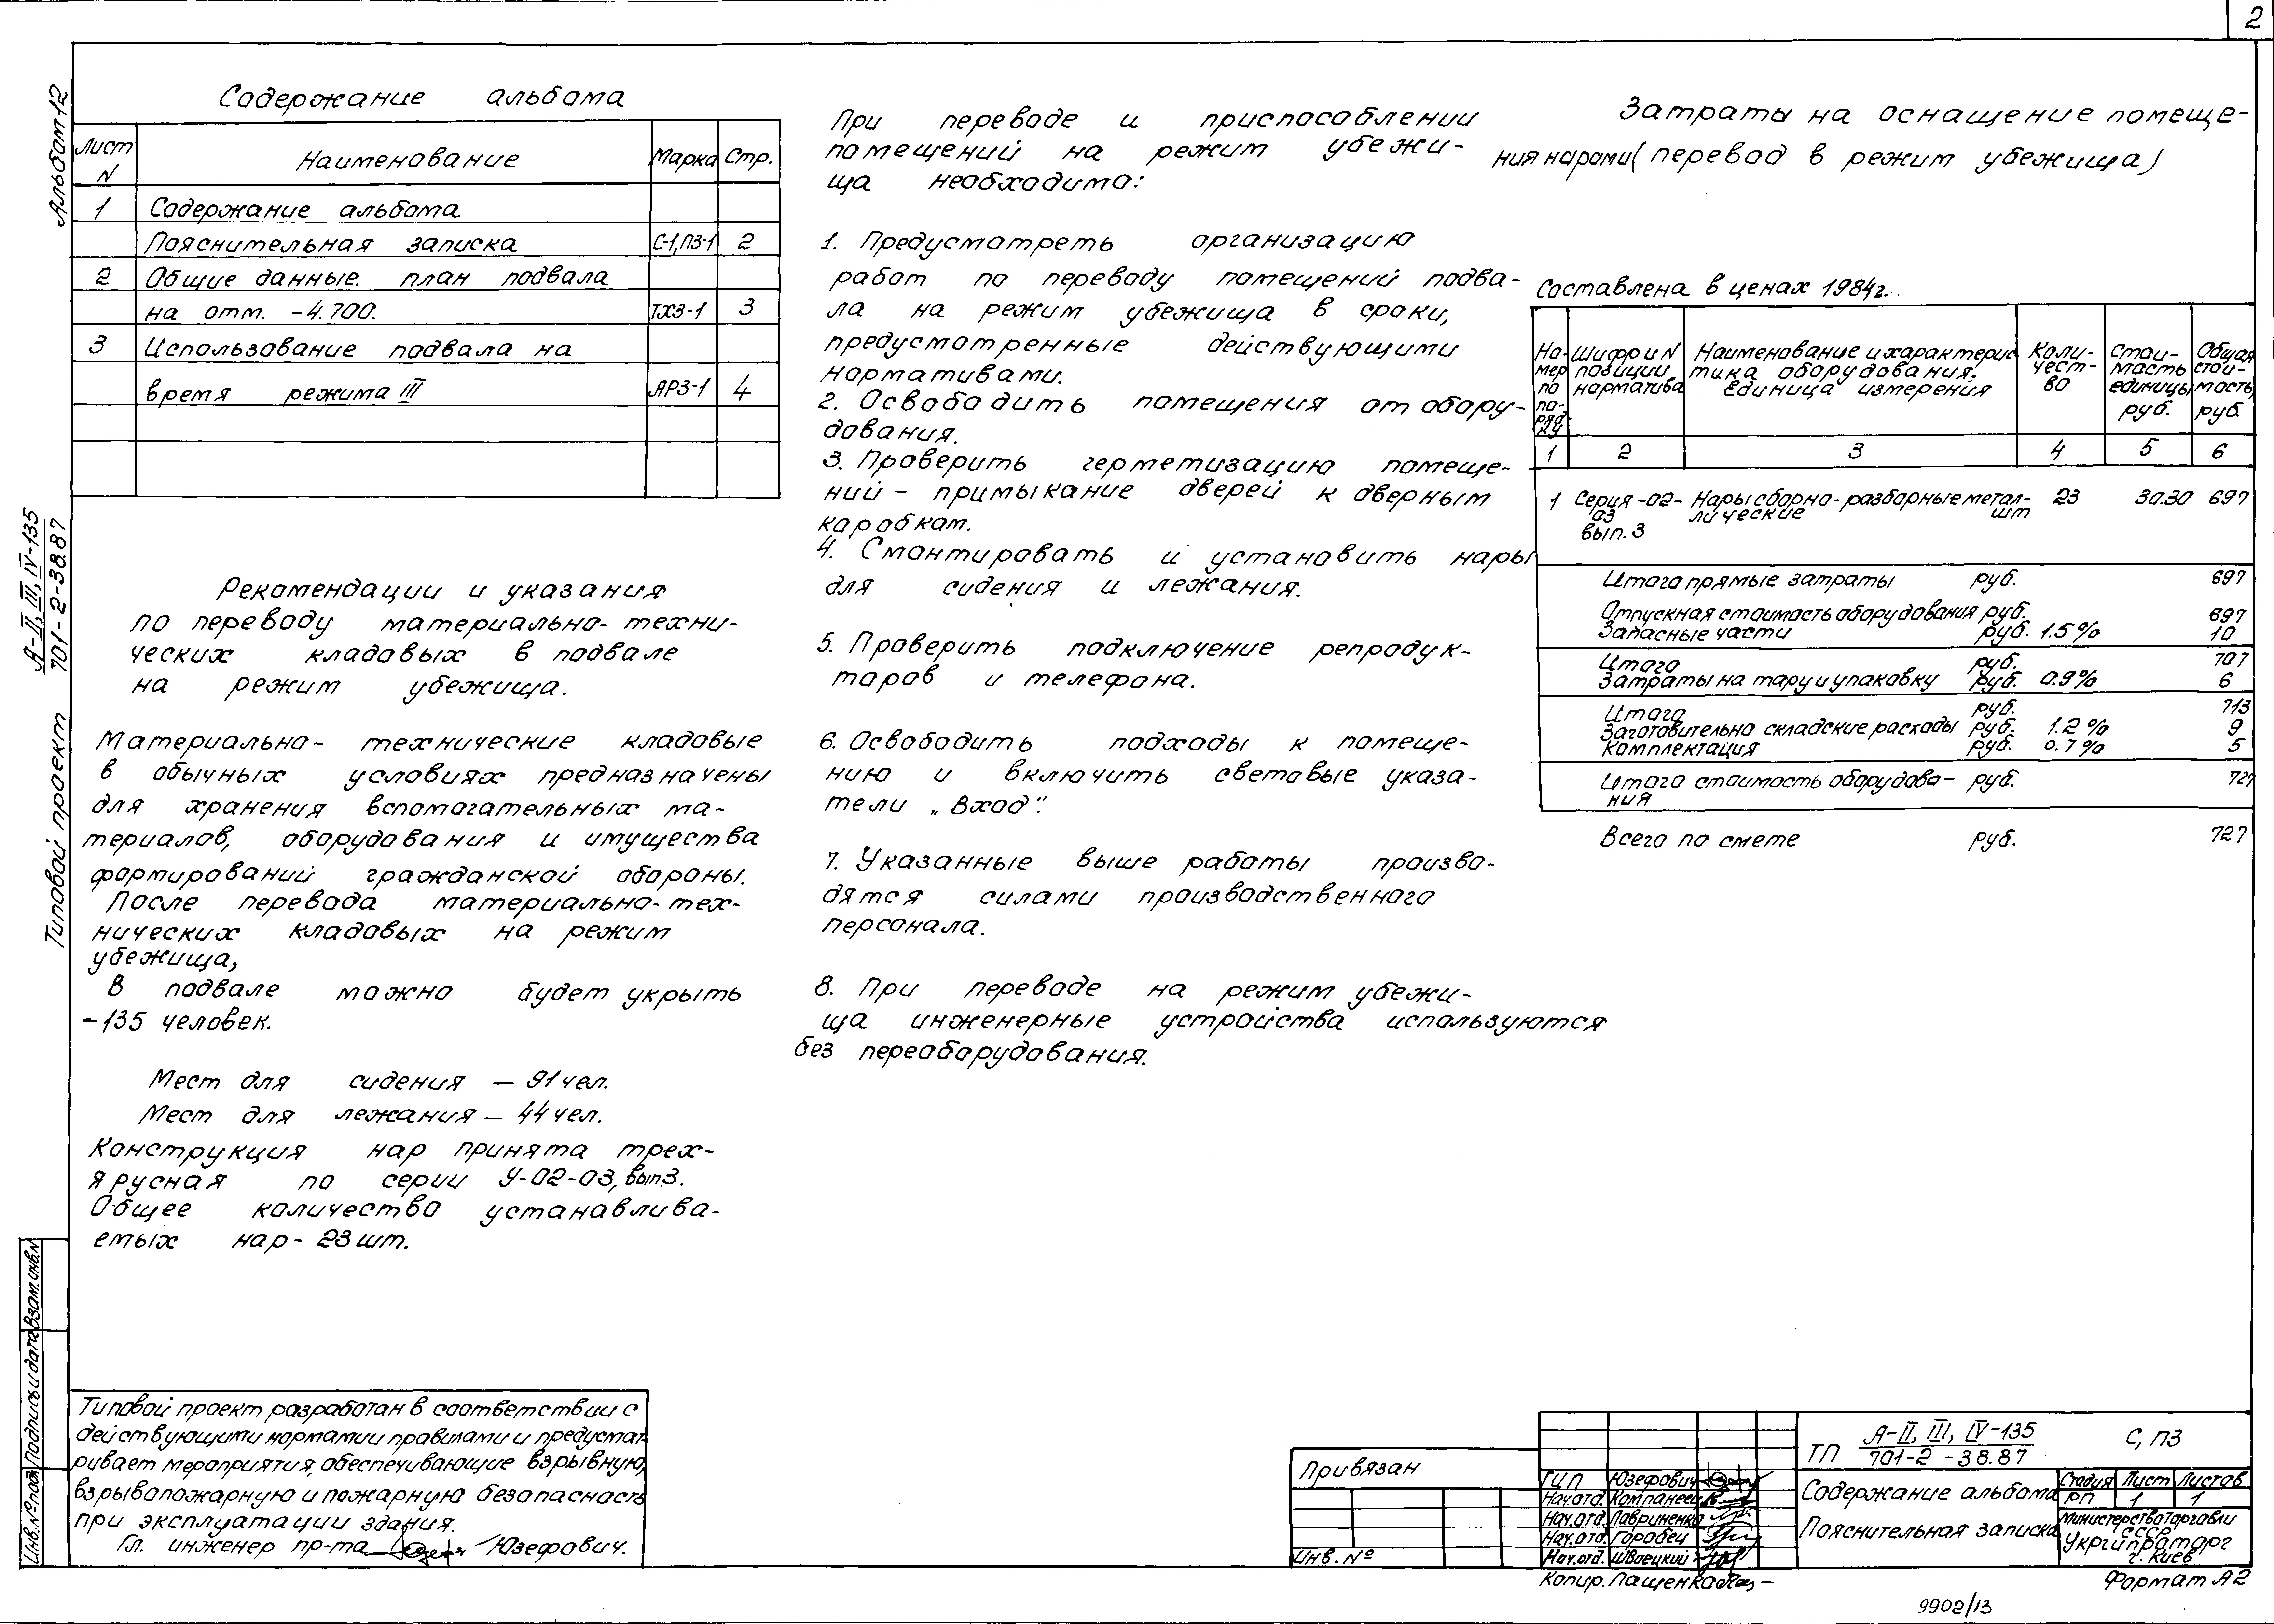 2
Альбом 12
А-II, III, IV-135
701-2-38.87
Типовой проект
Содержание альбома
Лист N Наименование Марка Стр.
1 Содержание альбома
Пояснительная записка С-1,ПЗ-1 2
2 Общие данные. план подвала
на отм. -4.700. ТХЗ-1 3
3 Использование подвала на
время режима III АРЗ-1 4
Рекомендации и указания
по переводу материально-техни-
ческих кладовых в подвале
на режим убежища.
Материально- технические кладовые
в обычных условиях предназначены
для хранения вспомогательных ма-
териалов, оборудования и имущества
формирований гражданской обороны.
После перевода материально-тех-
нических кладовых на режим
убежища,
В подвале можно будет укрыть
-135 человек.
Мест для сидения – 91 чел.
Мест для лежания – 44 чел.
Конструкция нар принята трех-
ярусная по серии У-02-03, вып.3.
Общее количество устанавлива-
емых нар- 23 шт.
При переводе и приспособлении
помещений на режим убежи-
ща необходимо:
1. Предусмотреть организацию
работ по переводу помещений подва-
ла на режим убежища в сроки,
предусмотренные действующими
нормативами.
2. Освободить помещения от обору-
дования.
3. Проверить герметизацию помеще-
ний – примыкание дверей к дверным
коробкам.
4. Смонтировать и установить нары
для сидения и лежания.
5. Проверить подключение репродук-
торов и телефона.
6. Освободить подходы к помеще-
нию и включить световые указа-
тели „Вход".
7. Указанные выше работы произво-
дятся силами производственного
персонала.
8. При переводе на режим убежи-
ща инженерные устройства используются
без переоборудования.
Затраты на оснащение помеще-
ния нарами (перевод в режим убежища)
Составлена в ценах 1984г.
Но-
мер
по
по-
ряд-
ку
Шифр и N
позиции
норматива
Наименование и характерис-
тика оборудования.
Единица измерения
Коли-
чест-
во
Стои-
мость
единицы
руб.
Общая
стои-
мость,
руб.
1 2 3 4 5 6
1 Серия-02- Нары сборно-разборные метал- 23 30.30 697
03 лические шт
вып. 3
Итого прямые затраты руб. 697
Отпускная стоимость оборудования руб. 697
Запасные части руб. 1.5% 10
Итого руб. 707
Затраты на тару и упаковку руб. 0.9% 6
Итого руб. 713
Заготовительно складские расходы руб. 1.2% 9
Комплектация руб. 0.7% 5
Итого стоимость оборудова- руб. 727
ния
Всего по смете руб. 727
Взам.инв.N
Подпись и дата
Инв.№ подл.
Типовой проект разработан в соответствии с
действующими нормами и правилами и предусмат-
ривает мероприятия, обеспечивающие взрывную,
взрывопожарную и пожарную безопасность
при эксплуатации здания.
Гл. инженер пр-та Юзефович.
Привязан
Инв. №
ГИП Юзефович
Нач.отд. Компанеец
Нач.отд. Лавриненко
Нач.отд. Горобец
Нач.отд. Швецкий
ТП А-II, III, IV-135
701-2-38.87
С, ПЗ
Содержание альбома
Пояснительная записка
Стадия Лист Листов
РП 1 1
Министерство Торговли
СССР
Укргипроторг
г. Киев
Копир. Пащенко
Формат А2
9902/13